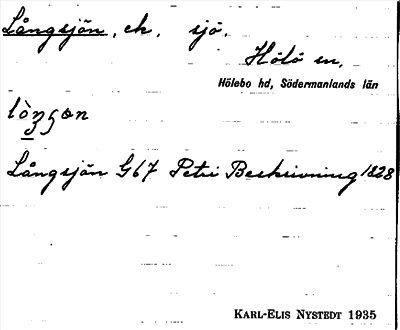 Långsjön, ek. sjö.
Hölö sn.
Hölebo hd, Södermanlands län
Långsjön G67 Petri Beskrivning 1828
KARL-ELIS NYSTEDT 1935